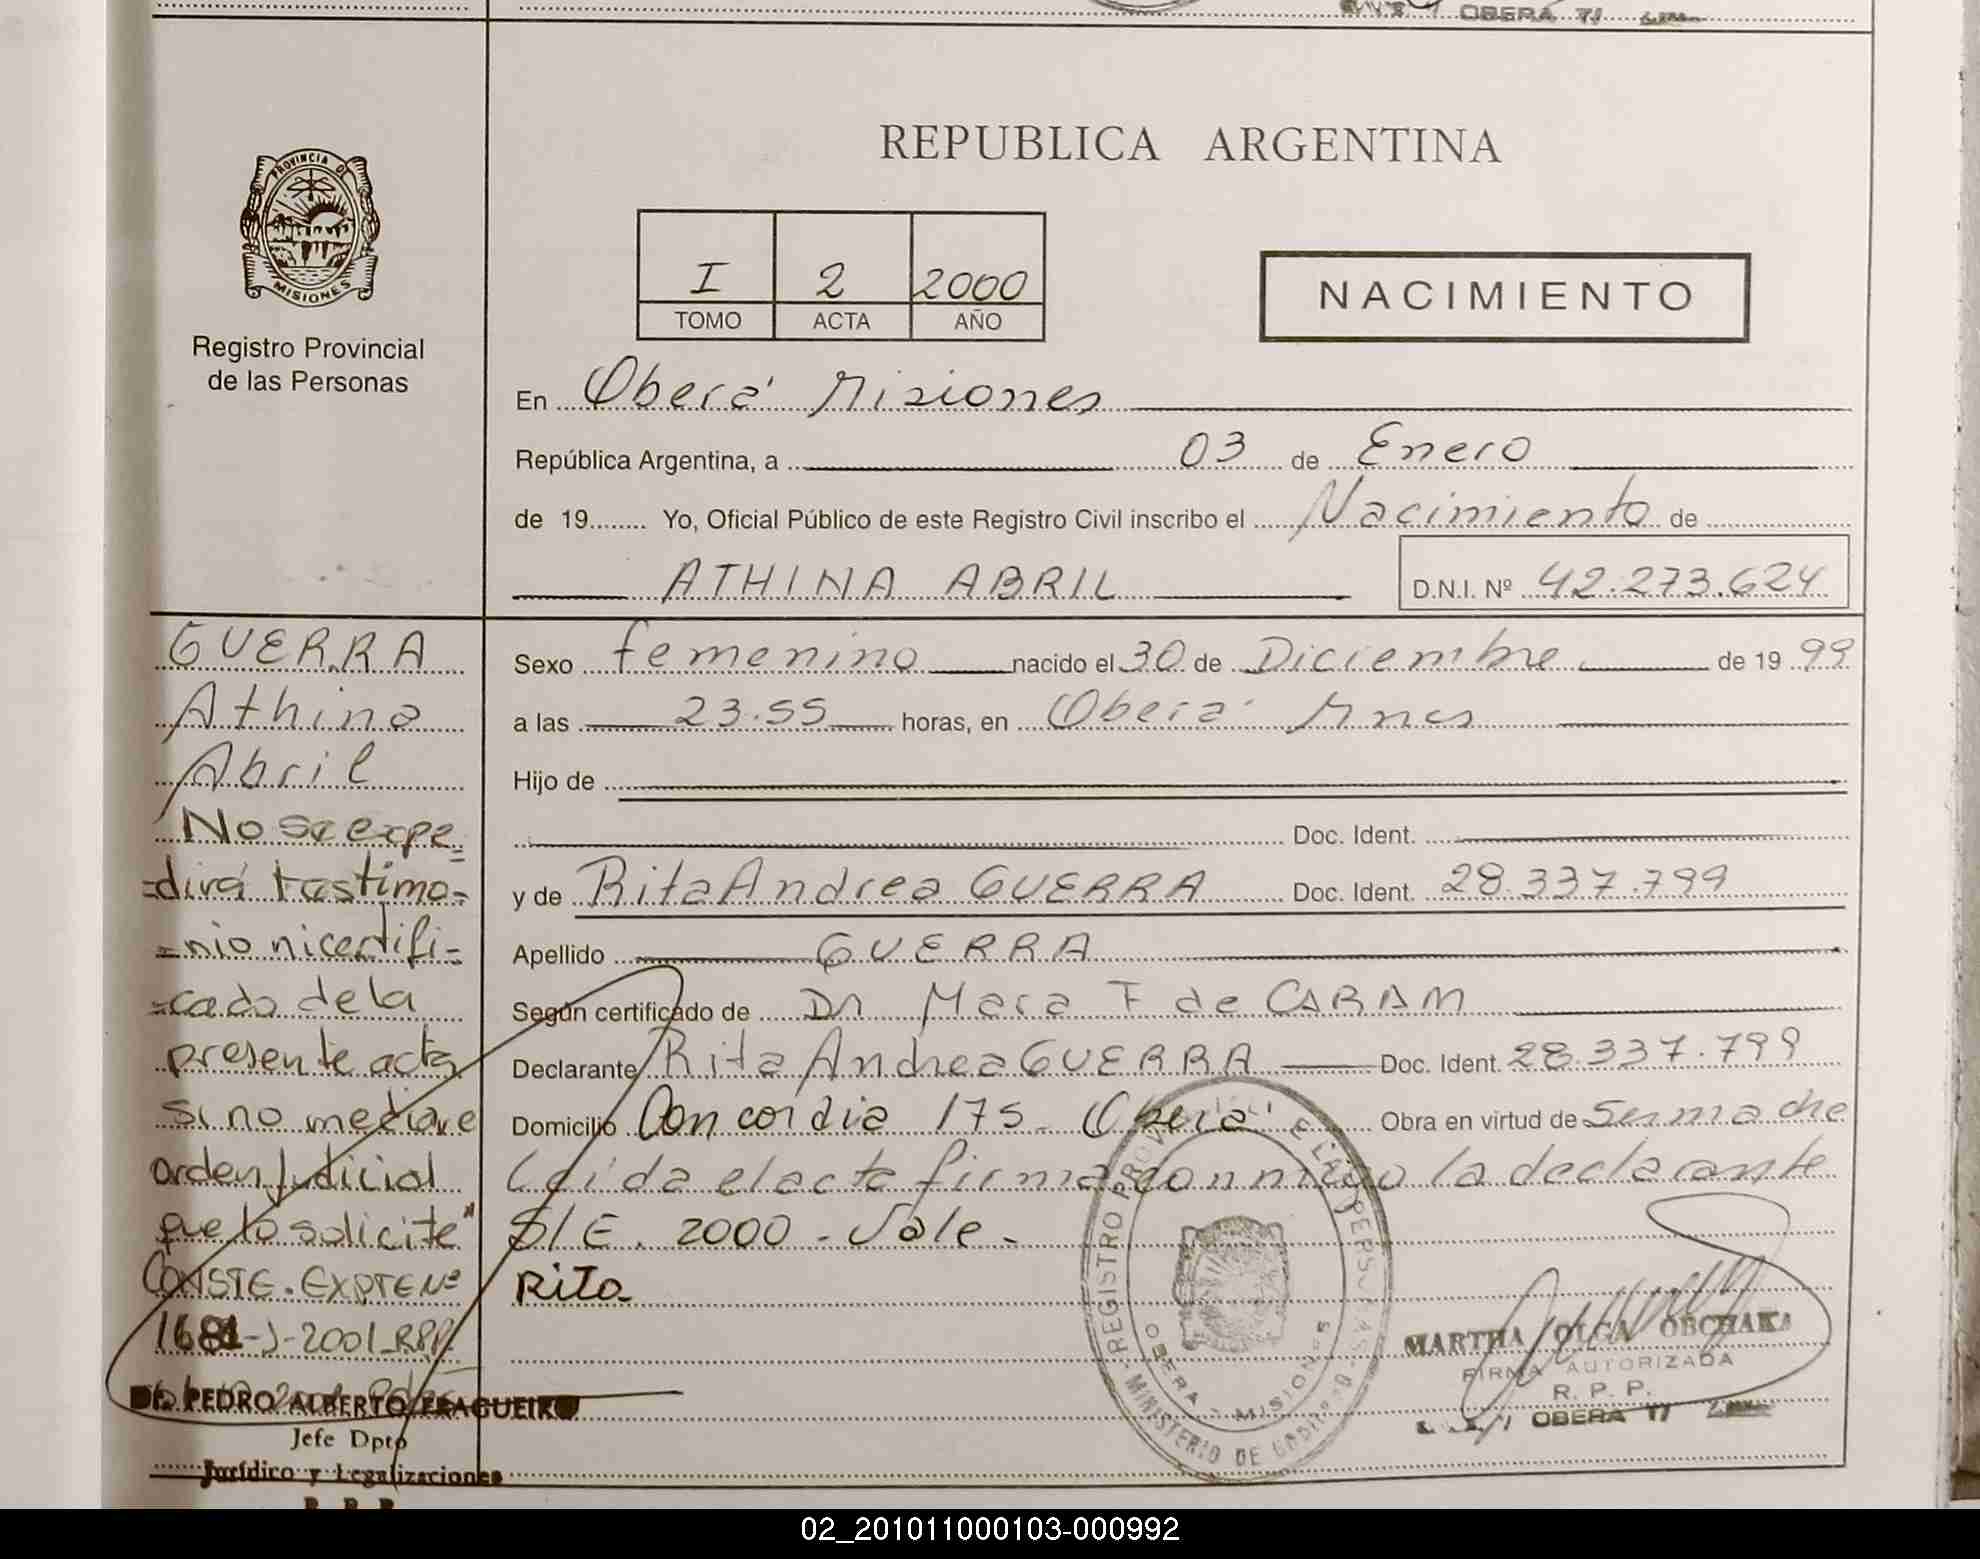 OBERA
REPUBLICA ARGENTINA
PROVINCIA DE
MISIONES
Registro Provincial
de las Personas
I 2 2000
TOMO ACTA AÑO
NACIMIENTO
En Oberá Misiones
República Argentina, a 03 de Enero
de 19........ Yo, Oficial Público de este Registro Civil inscribo el Nacimiento de
ATHINA ABRIL D.N.I. Nº 42.273.624
GUERRA
Athina
Abril
No se expe
=dirá testimo=
=nio ni certifi=
=cado de la
presente acta
si no mediare
orden Judicial
que lo solicite"
CONSTE. EXPTE Nº
1681-J-2001_RPP
Dr. PEDRO ALBERTO FRAGUEIRO
Jefe Dpto
Jurídico y Legalizaciones
R. P. P.
Sexo femenino nacido el 30 de Diciembre de 19 99
a las 23.55 horas, en Oberá Mnes
Hijo de
Doc. Ident.
y de Rita Andrea GUERRA Doc. Ident. 28.337.799
Apellido GUERRA
Según certificado de Dr Mara F de CARAM
Declarante Rita Andrea GUERRA Doc. Ident. 28.337.799
Domicilio Concordia 175 - Oberá Obra en virtud de Ser madre
Leída el acta firma conmigo la declarante
S/E. 2000 - Vale -
Rita
REGISTRO PROVINCIAL DE LAS PERSONAS
OBERA - MISIONES
MINISTERIO DE GOBIERNO
MARTHA OLGA OBCHAKA
FIRMA AUTORIZADA
R. P. P.
OBERA
02_201011000103-000992